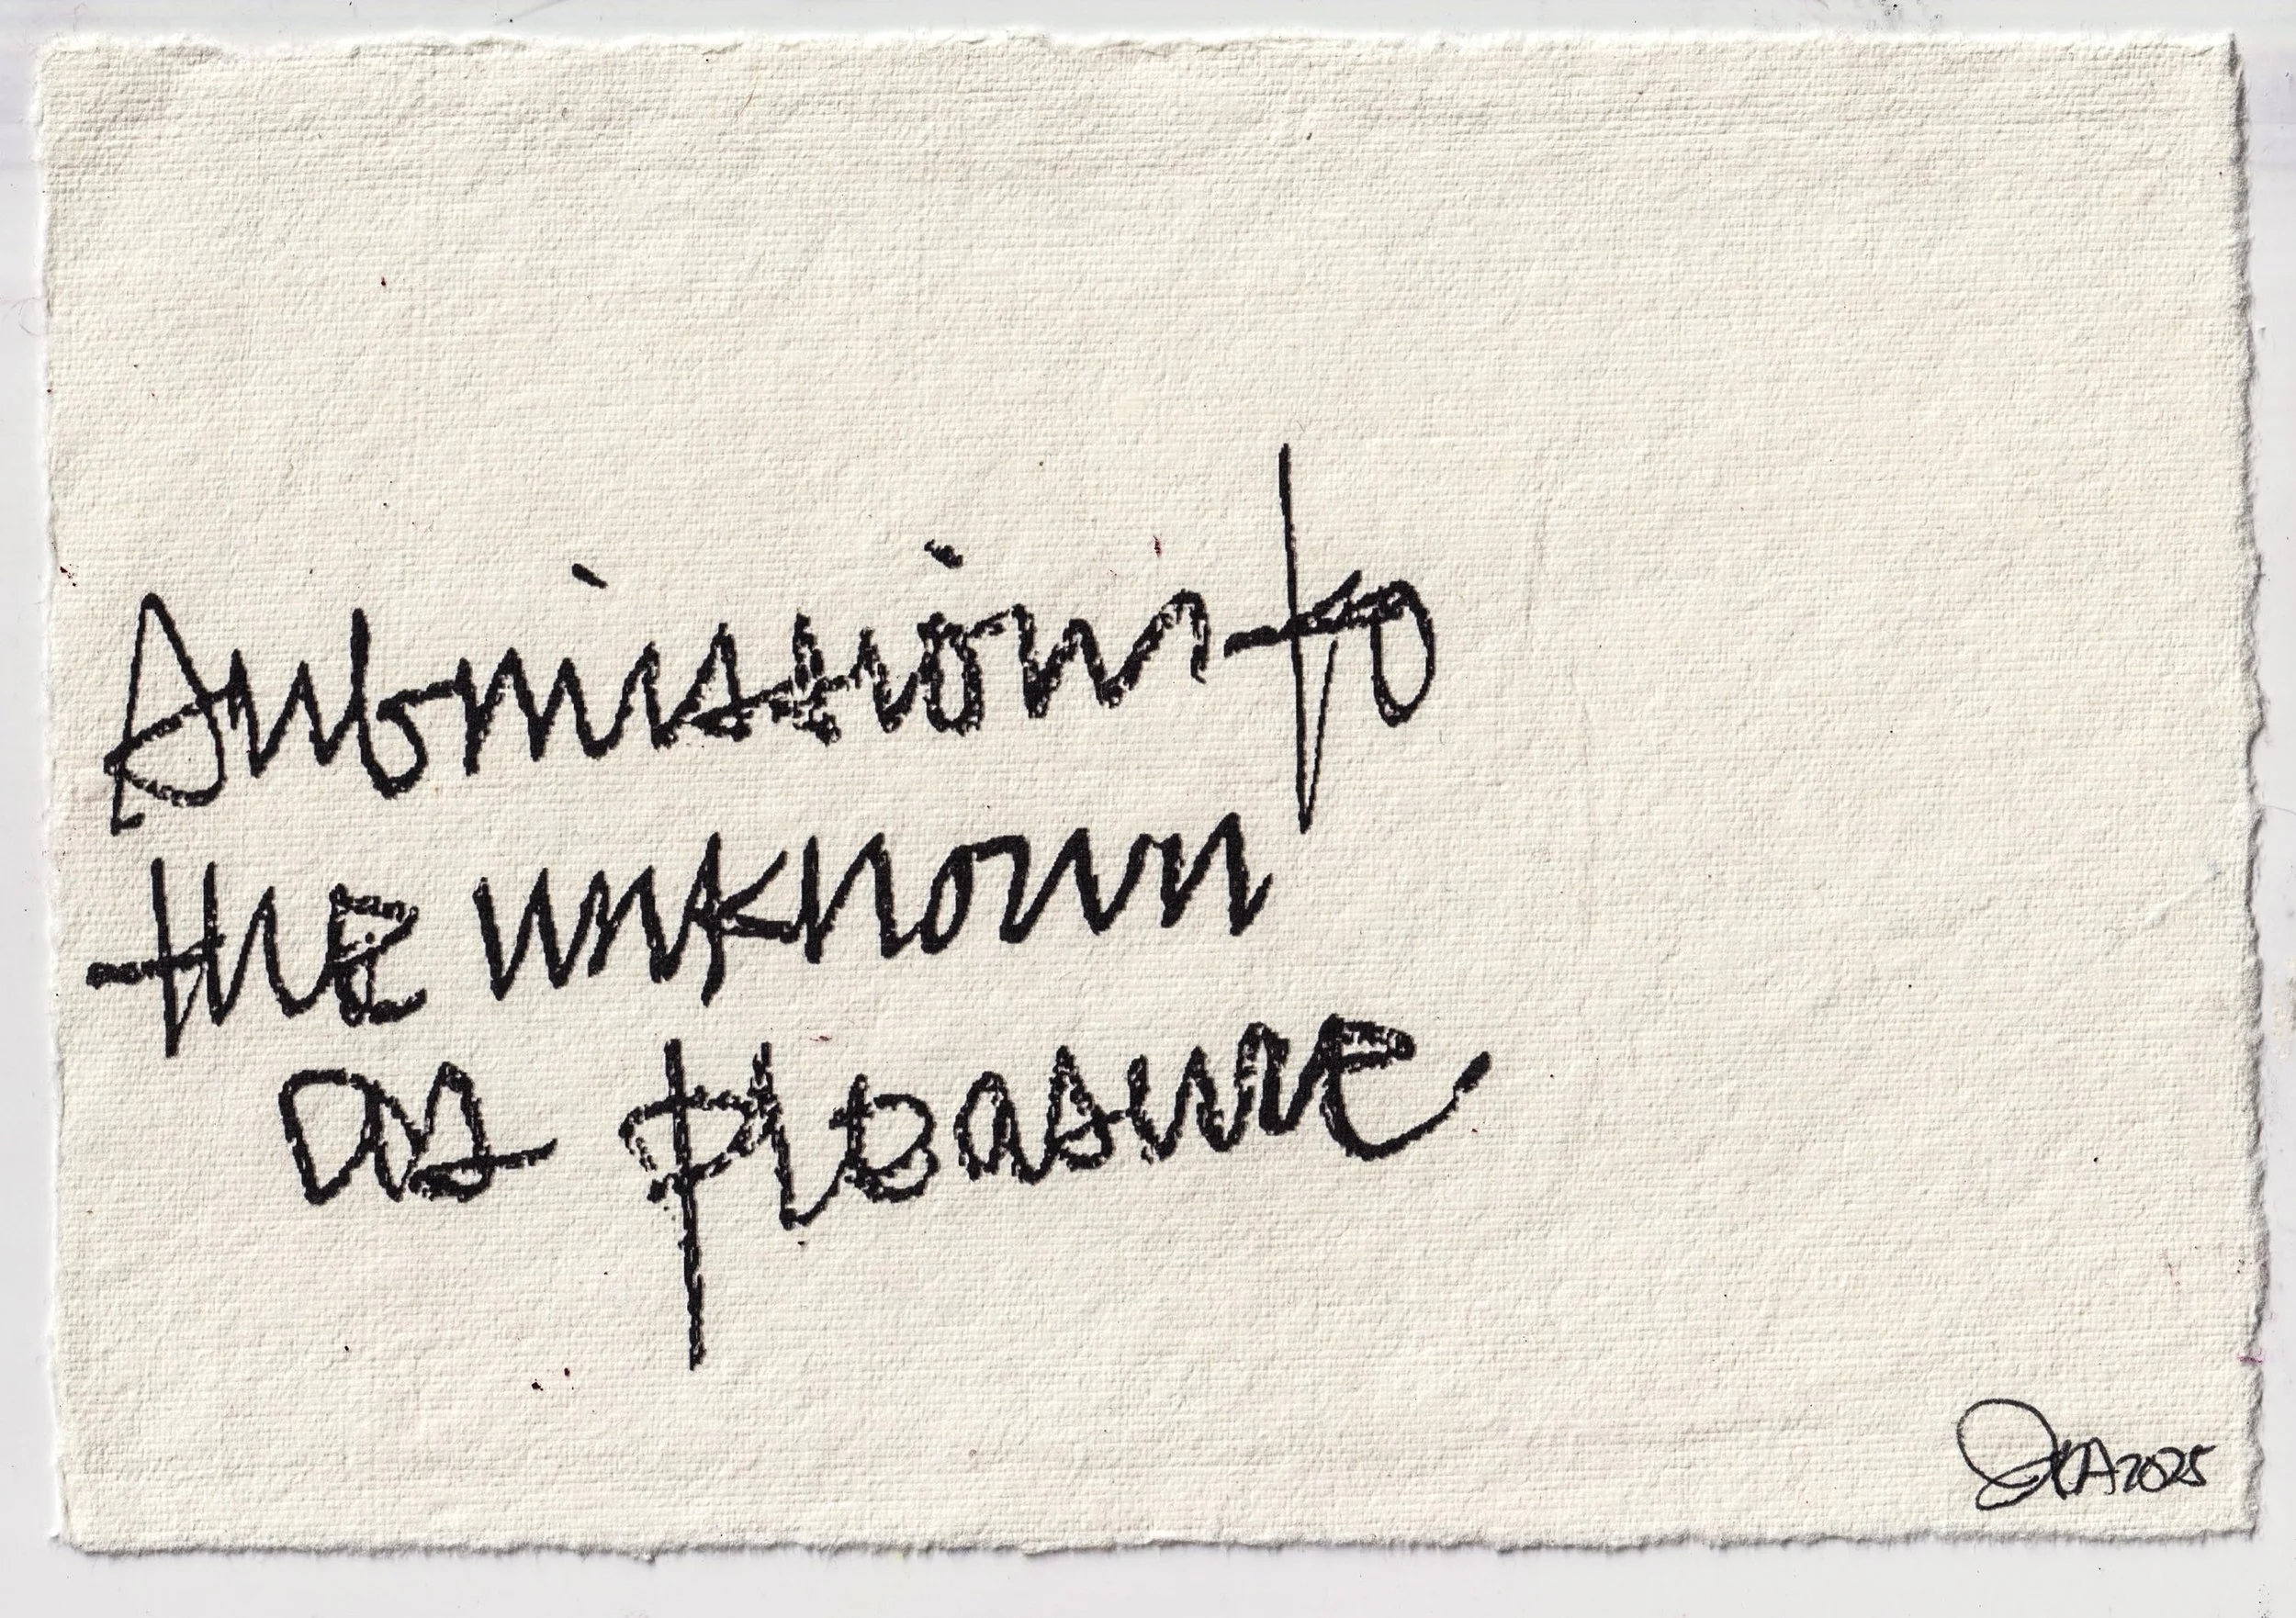 submission to
the unknown
as pleasure
2025